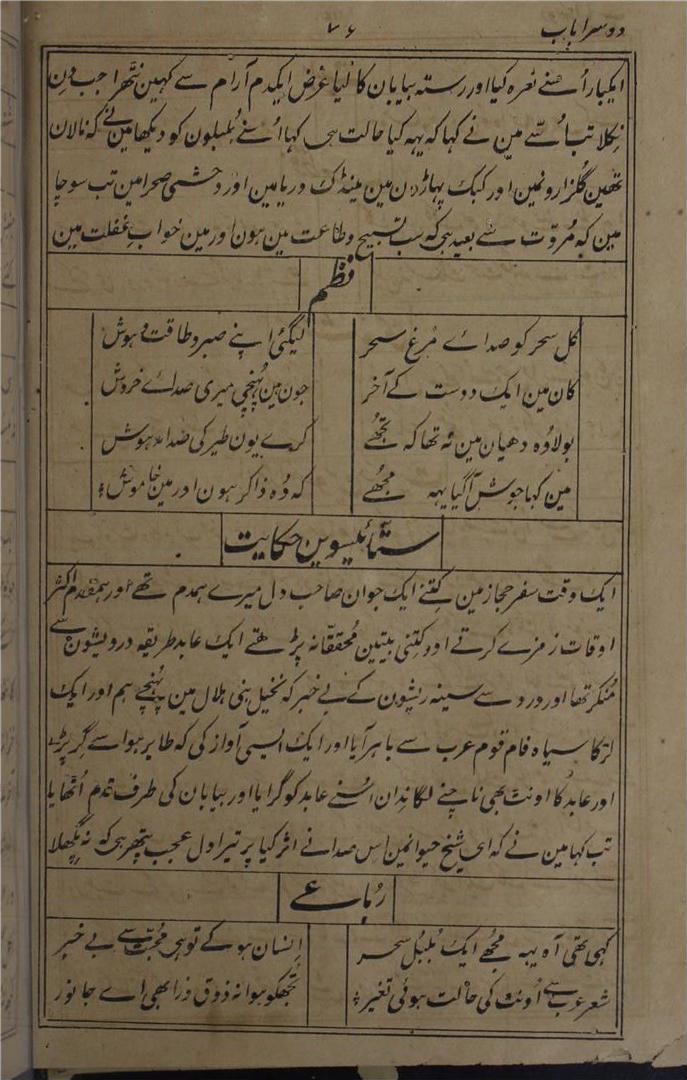 دوسرا باب ۷۶
ایکبار اُسنے نعرہ کیا اور رستہ بیابان کا لیا غرض ایکدم آرام سے کہین نٹھرا جب دِن
نِکلا تب اُسّے مین نے کہا کہ یہہ کیا حالت ہی کہا اُسنے بُلبلون کو دیکھا مین نے کہ نالان
تھین گلزارونمین اور کبک پہاڑون مین مینڈک دریا مین اور وحشی صحرا مین تب سوچا
مین کہ مُروّت سے بعید ہی کہ سب تسبیح و طاعت مین ہون اور مین خواب غفلت مین
نظم
کل سحر کو صدائے مُرغ سحر لیگئی اپنے صبر و طاقت و ہوش
کان مین ایک دوست کے آخر جون ہین پُہنچی میری صدائے خروش
بولا وُہ دھیان مین نہ تھا کہ تجُھے کرے یون طیر کی صدا مدہوش
مین کہا جوش آ گیا یہہ مجُھے کہ وُہ ذاکر ہون اور مین خاموش
ستائیسوین حکایت
ایک وقت سفر حجاز مین کِتنے ایک جوان صاحب دل میرے ہمدم تھے اور ہمقدم اکثر
اوقات زمزمے کرتے اور کِتنی بیتین مُحققانہ پڑھتے ایک عابد طریقہ درویشون سے
مُنکر تھا اور درد سے سینہ ریشون کے بے خبر کہ نخیل بنی ہلال مین پُہنچے ہم اور ایک
لڑکا سیاہ فام قوم عرب سے باہر آیا اور ایک ایسی آواز کی کہ طایر ہوا سے گر پڑے
اور عابد کا اونٹ بھی ناچنے لگا ندان اُسنے عابد کو گرایا اور بیابان کی طرف قدم اُٹھایا
تب کہا مین نے کہ ای شیخ حیوانمین اِس صدا نے اثر کیا پر تیرا دل عجب پتھر ہی کہ نہ پگھلا
رُباعے
کہی تھی آہ یہہ مجُھے ایک بُلبُل سحر اِنسان ہو کے تو ہی محبّت سے بے خبر
شعر عرب سے اُونٹ کی حالت ہوئی تغیر تُجھکو ہوا نہ ذوق ذرا بھی اے جانور